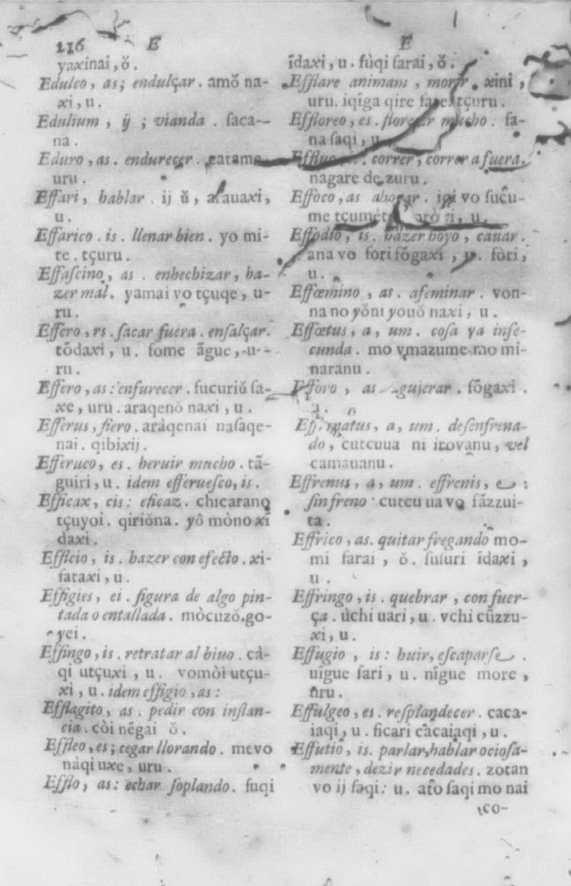 116 E
yaxinai, ŏ.
Edulco, as; endulçar. amŏ na-
xi, u.
Edulium, ij; vianda. saca-
na.
Eduro, as. endurecer. catame,
uru.
Effari, hablar. ij ŭ, arauaxi,
u.
Effarico. is. llenar bien. yo mi-
te. tçuru.
Effascino, as. enhechizar, ha-
zer mal. yamai vo tçuqe, u-
ru.
Effero, rs. sacar fuera. ensalçar.
tŏdaxi, u. fome ãgue, u-
ru.
Effero, as: enfurecer. fucuriŏ sa-
xe, uru. araqenŏ naxi, u.
Efferus, fiero. aràqenai nasaqe-
nai. qibixij.
Efferuco, es. heruir mucho. tã-
guiri, u. idem efferuesco, is.
Efficax, cis: eficaz. chicarano
tçuyoi. qiriŏna. yŏ mŏno xi
daxi.
Efficio, is. hazer con efecto. xi-
sataxi, u.
Effigies, ei. figura de algo pin-
tada o entallada. mòcuzŏ, go-
yei.
Effingo, is. retratar al biuo. cà-
qi utçuxi, u. vomŏi utçu-
xi, u. idem effigio, as:
Efflagito, as. pedir con instan-
cia. còi nẽgai ŏ.
Effleo, es; cegar llorando. mevo
nàqi uxe, uru.
Efflo, as: echar soplando. fuqi
E
ĩdaxi, u. fùqi farai, ŏ.
Efflare animam, morir. xini,
uru. iqiga qire tçuru.
Effloreo, es. florecer mucho. fa-
na saqi, u.
correr, correr a fuera,
nagare de, zuru.
Effoco, as ahogar. iqi vo fucu-
me
Effodio, is. hazer hoyo, cauar.
ana vo fori fŏgaxi, u. fòri,
u.
Effœmino, as. afeminar. von-
na no yŏni youŏ naxi, u.
Effœtus, a, um. cosa ya infe-
cunda. mo vmazume mo mi-
naranu.
Efforo, as agujerar. fŏgaxi.
u.
a, um. desenfrena-
do, cutcuua ni irovanu, vel
camauanu.
Effrenus, a, um. effrenis, e:
sin freno cutcu ua vo fãzzui-
ta.
Effrico, as. quitar fregando mo-
mi farai, ŏ. fusuri ĩdaxi,
u.
Effringo, is. quebrar, con fuer-
ça. ùchi uari, u. vchi cũzzu-
xi, u.
Effugio, is: huir, escaparse.
uigue sari, u. nĩgue more,
ũru.
Effulgeo, es. resplandecer. caca-
iaqi, u. ficari cãcaiaqi, u.
Effutio, is. parlar, hablar ociosa-
mente, dezir necedades. zotan
vo ij saqi: u. afo saqi mo nai
co-